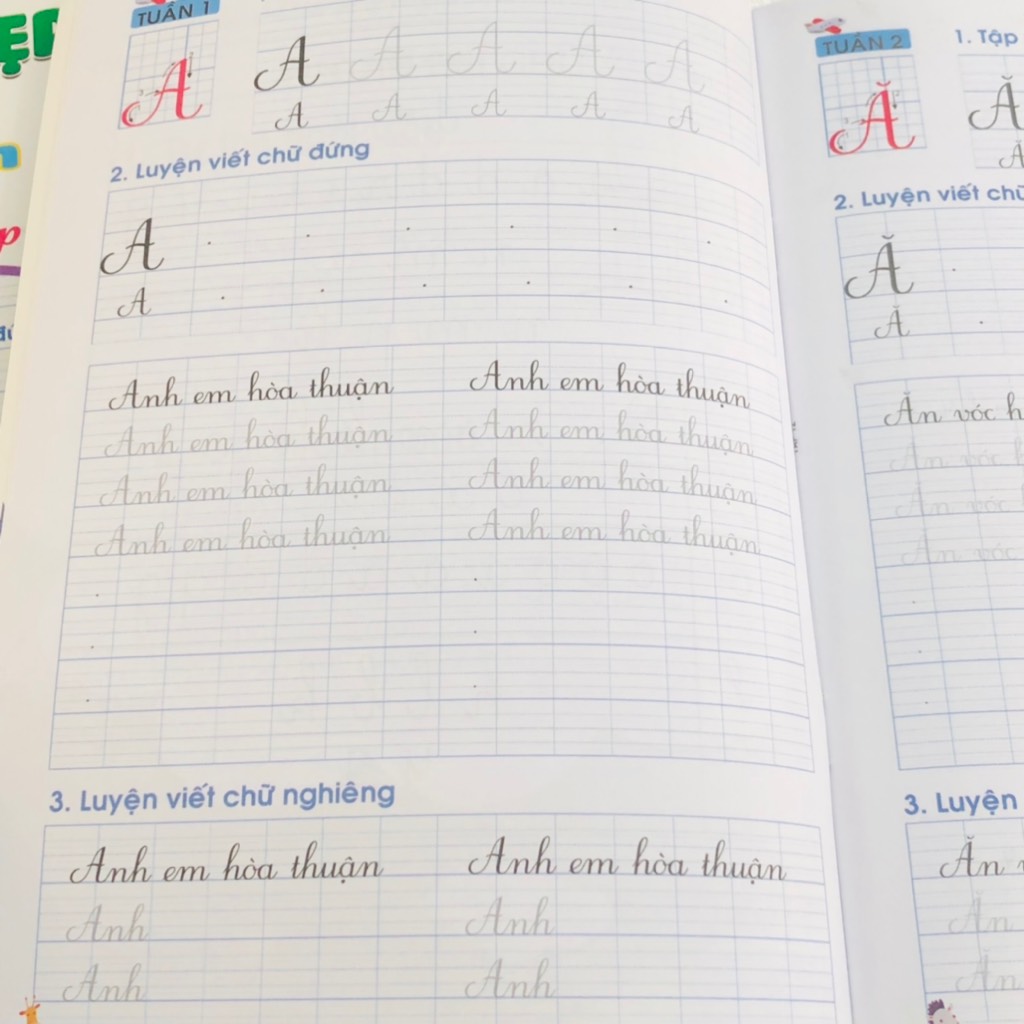 TUẦN 1
A A A A A A
A A A A A
2. Luyện viết chữ đứng
A
A
Anh em hòa thuận Anh em hòa thuận
Anh em hòa thuận Anh em hòa thuận
Anh em hòa thuận Anh em hòa thuận
Anh em hòa thuận Anh em hòa thuận
3. Luyện viết chữ nghiêng
Anh em hòa thuận Anh em hòa thuận
Anh Anh
Anh Anh
TUẦN 2
1. Tập
Ă Ă
Ă
2. Luyện viết
Ă
Ă
Ăn vóc
Ăn vóc
Ăn vóc
Ăn vóc
3. Luyện
Ăn
Ăn
Ăn